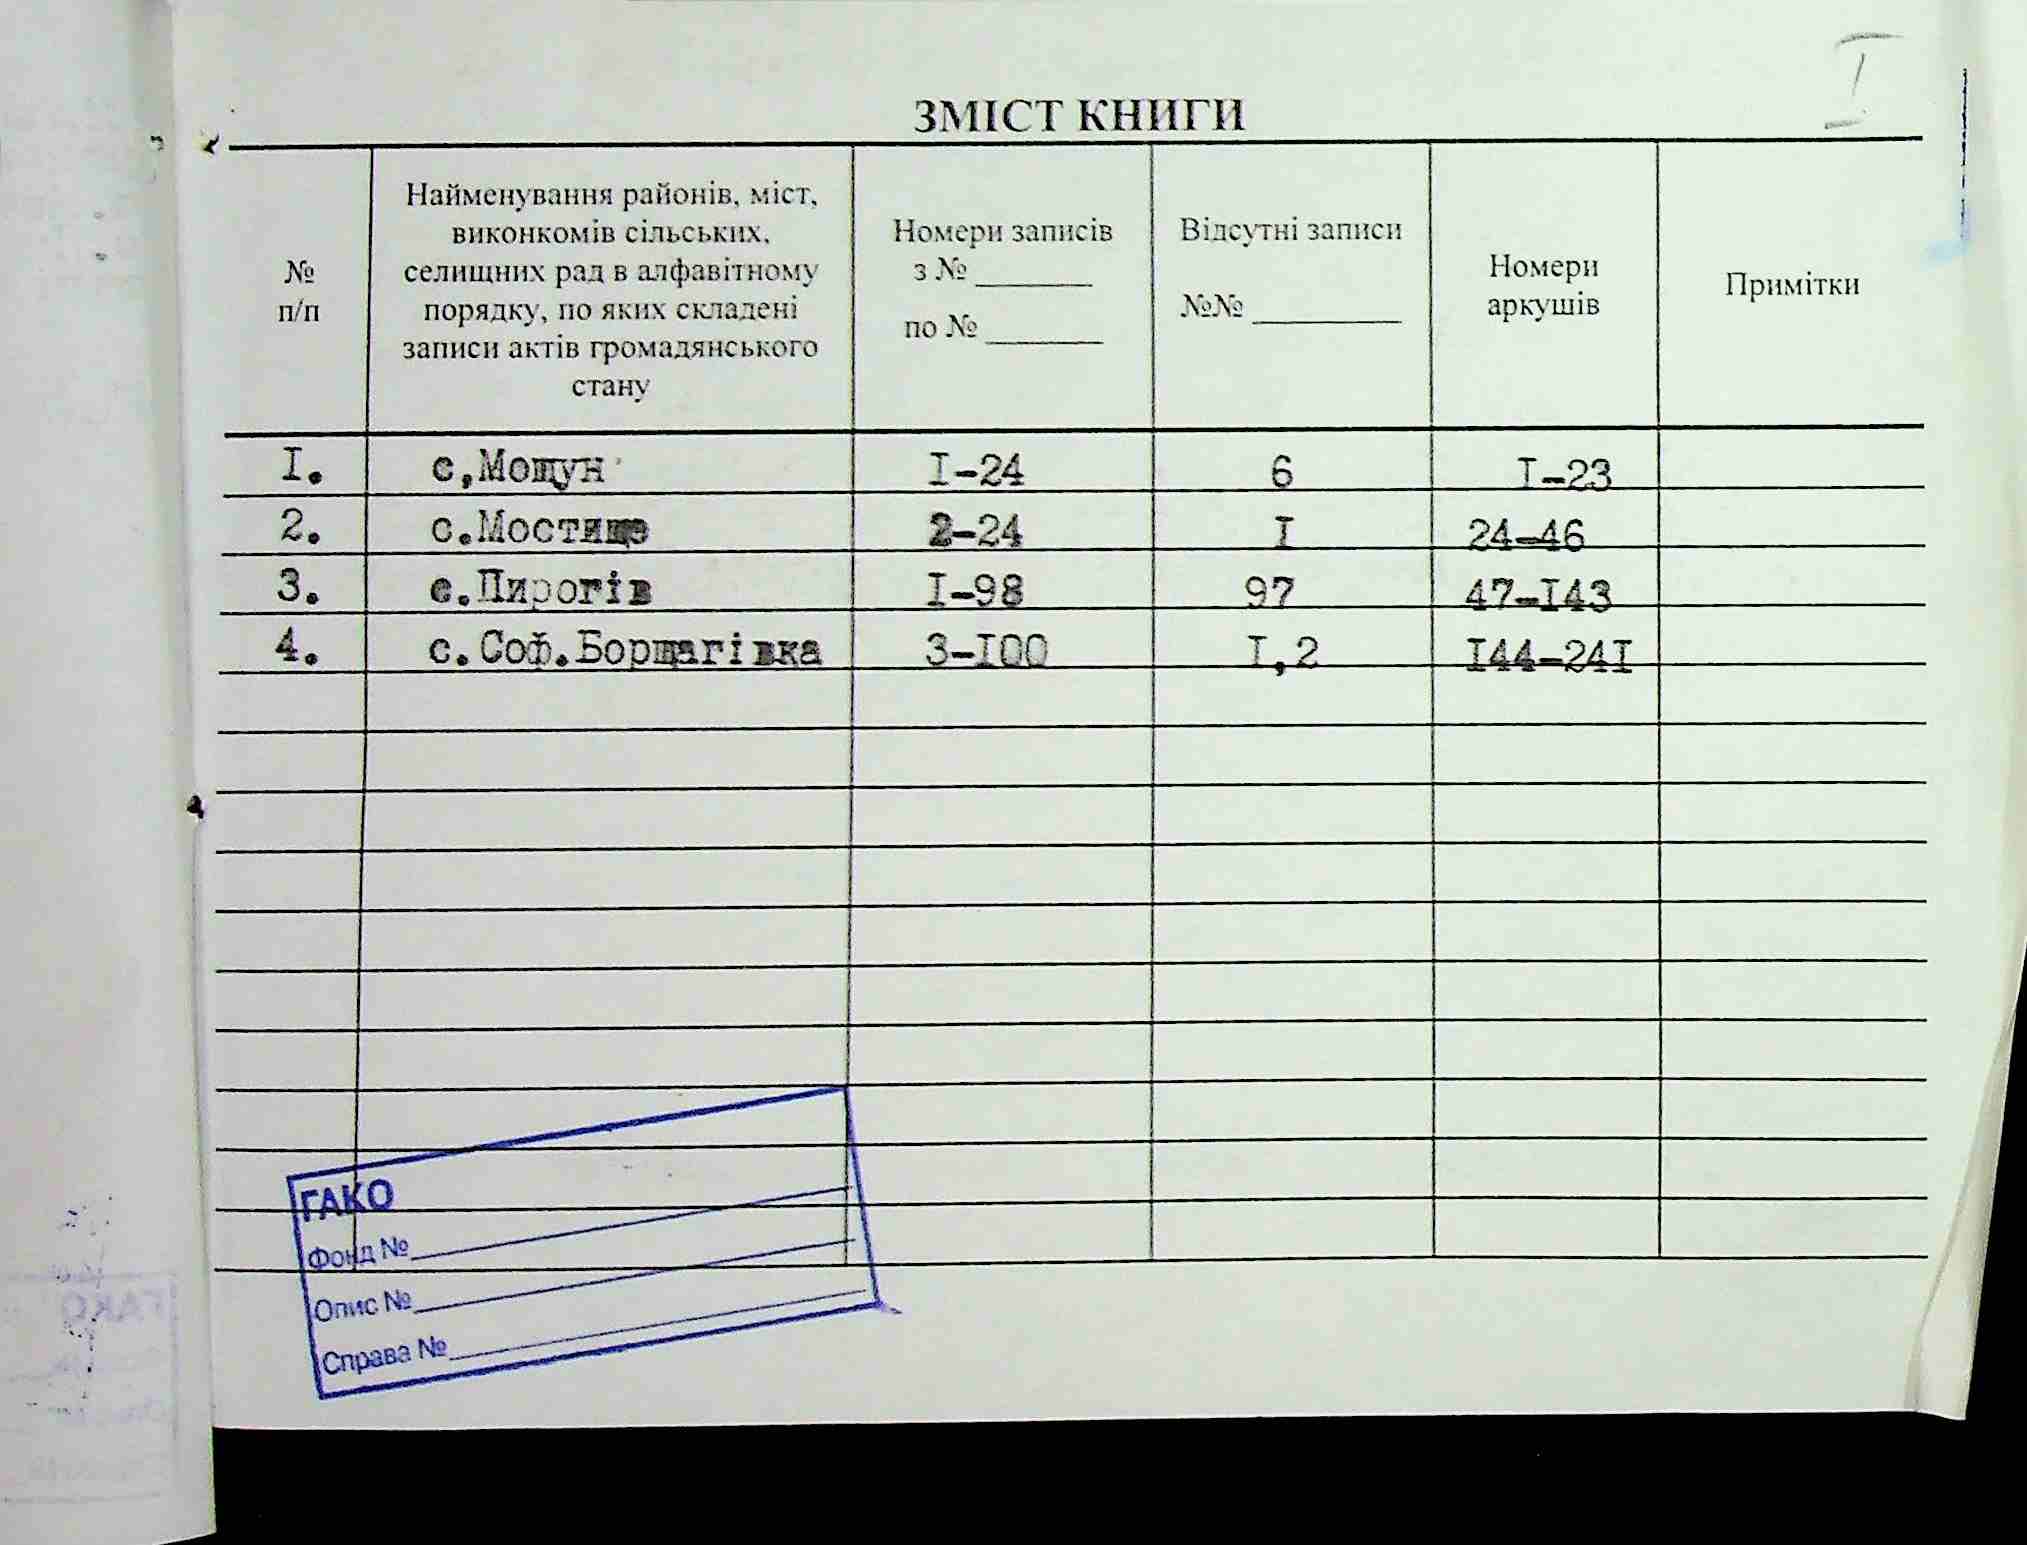 I
ЗМІСТ КНИГИ
№
п/п
Найменування районів, міст,
виконкомів сільських,
селищних рад в алфавітному
порядку, по яких складені
записи актів громадянського
стану
Номери записів
з № ________
по № ________
Відсутні записи
№№ __________
Номери
аркушів
Примітки
I. с,Мощун I-24 6 I-23
2. с.Мостище 2-24 I 24-46
3. с.Пирогів I-98 97 47-I43
4. с.Соф.Борщагівка 3-I00 I,2 I44-24I
ГАКО
Фонд №
Опис №
Справа №